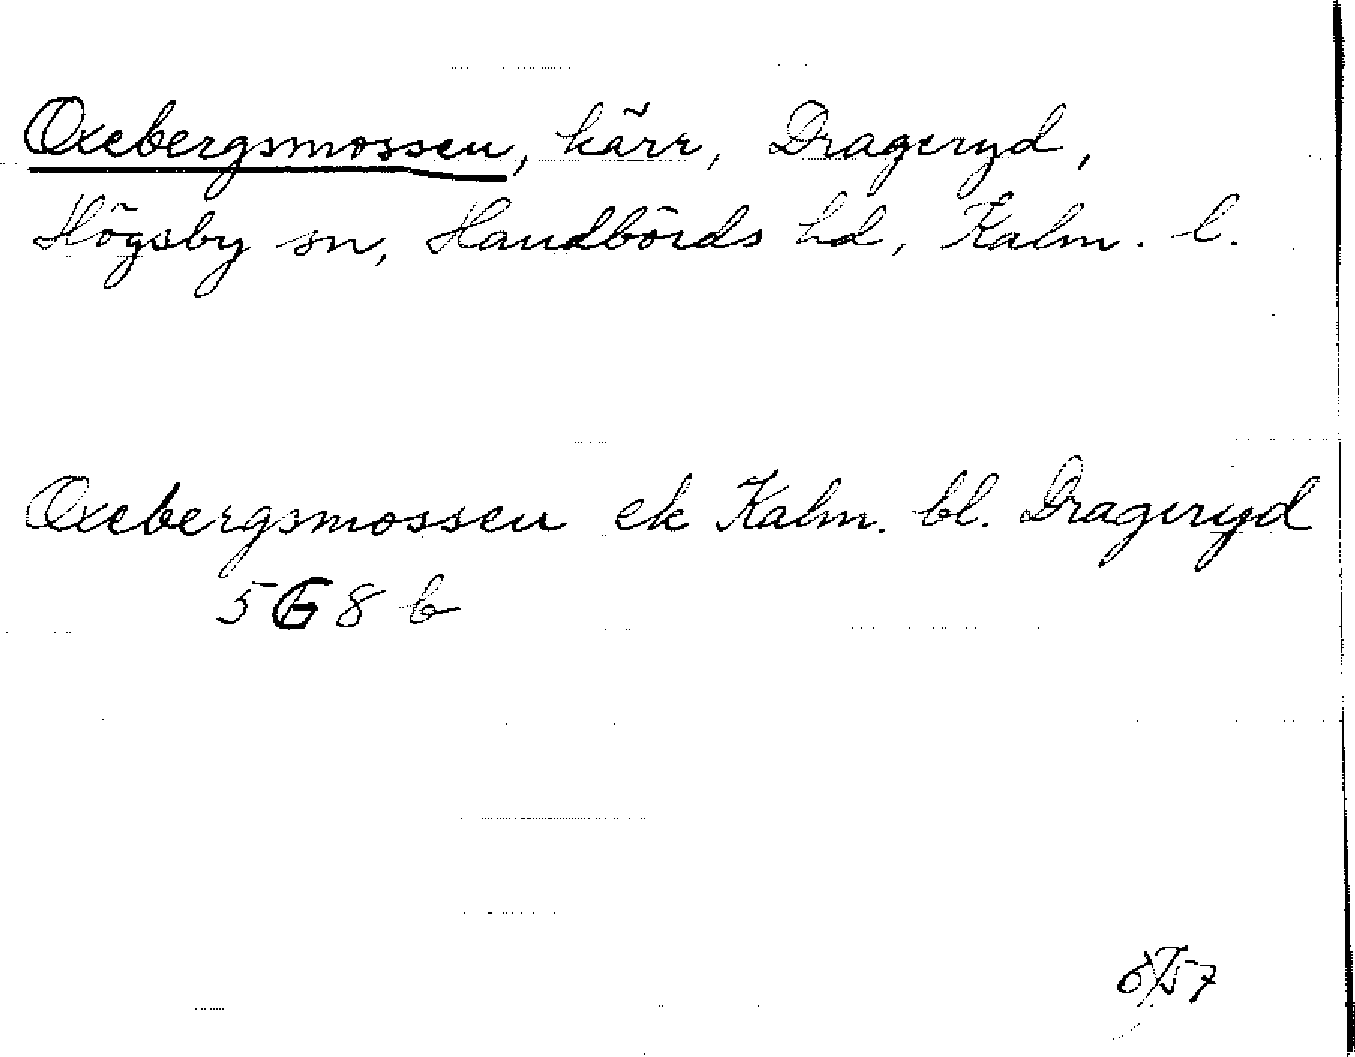 Oxebergsmossen, kärr, Drageryd,
Högsby sn, Handbörds hd, Kalm. l.
Oxebergsmossen ek Kalm. bl. Drageryd
5G 8 b